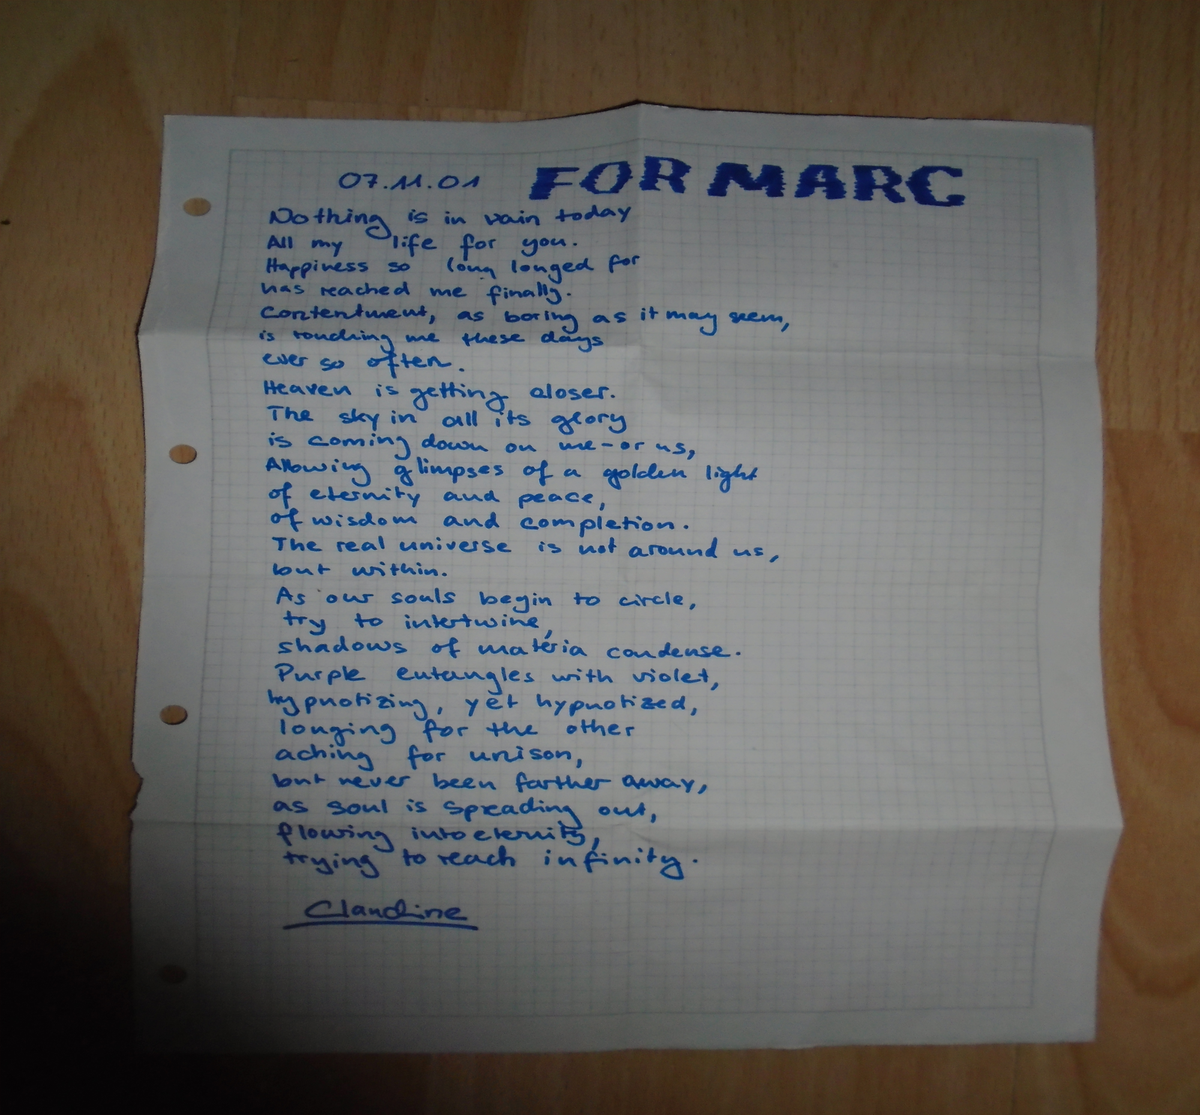 07.11.01 FOR MARC
Nothing is in vain today
All my life for you.
Happiness so long longed for
has reached me finally.
Contentment, as boring as it may seem,
is touching me these days
ever so often.
Heaven is getting closer.
The sky in all its glory
is coming down on me - or us,
Allowing glimpses of a golden light
of eternity and peace,
of wisdom and completion.
The real universe is not around us,
but within.
As our souls begin to circle,
try to intertwine,
shadows of matéria condense.
Purple entangles with violet,
hypnotizing, yet hypnotized,
longing for the other
aching for unison,
but never been farther away,
as soul is spreading out,
flowing into eternity,
trying to reach infinity.
Claudine